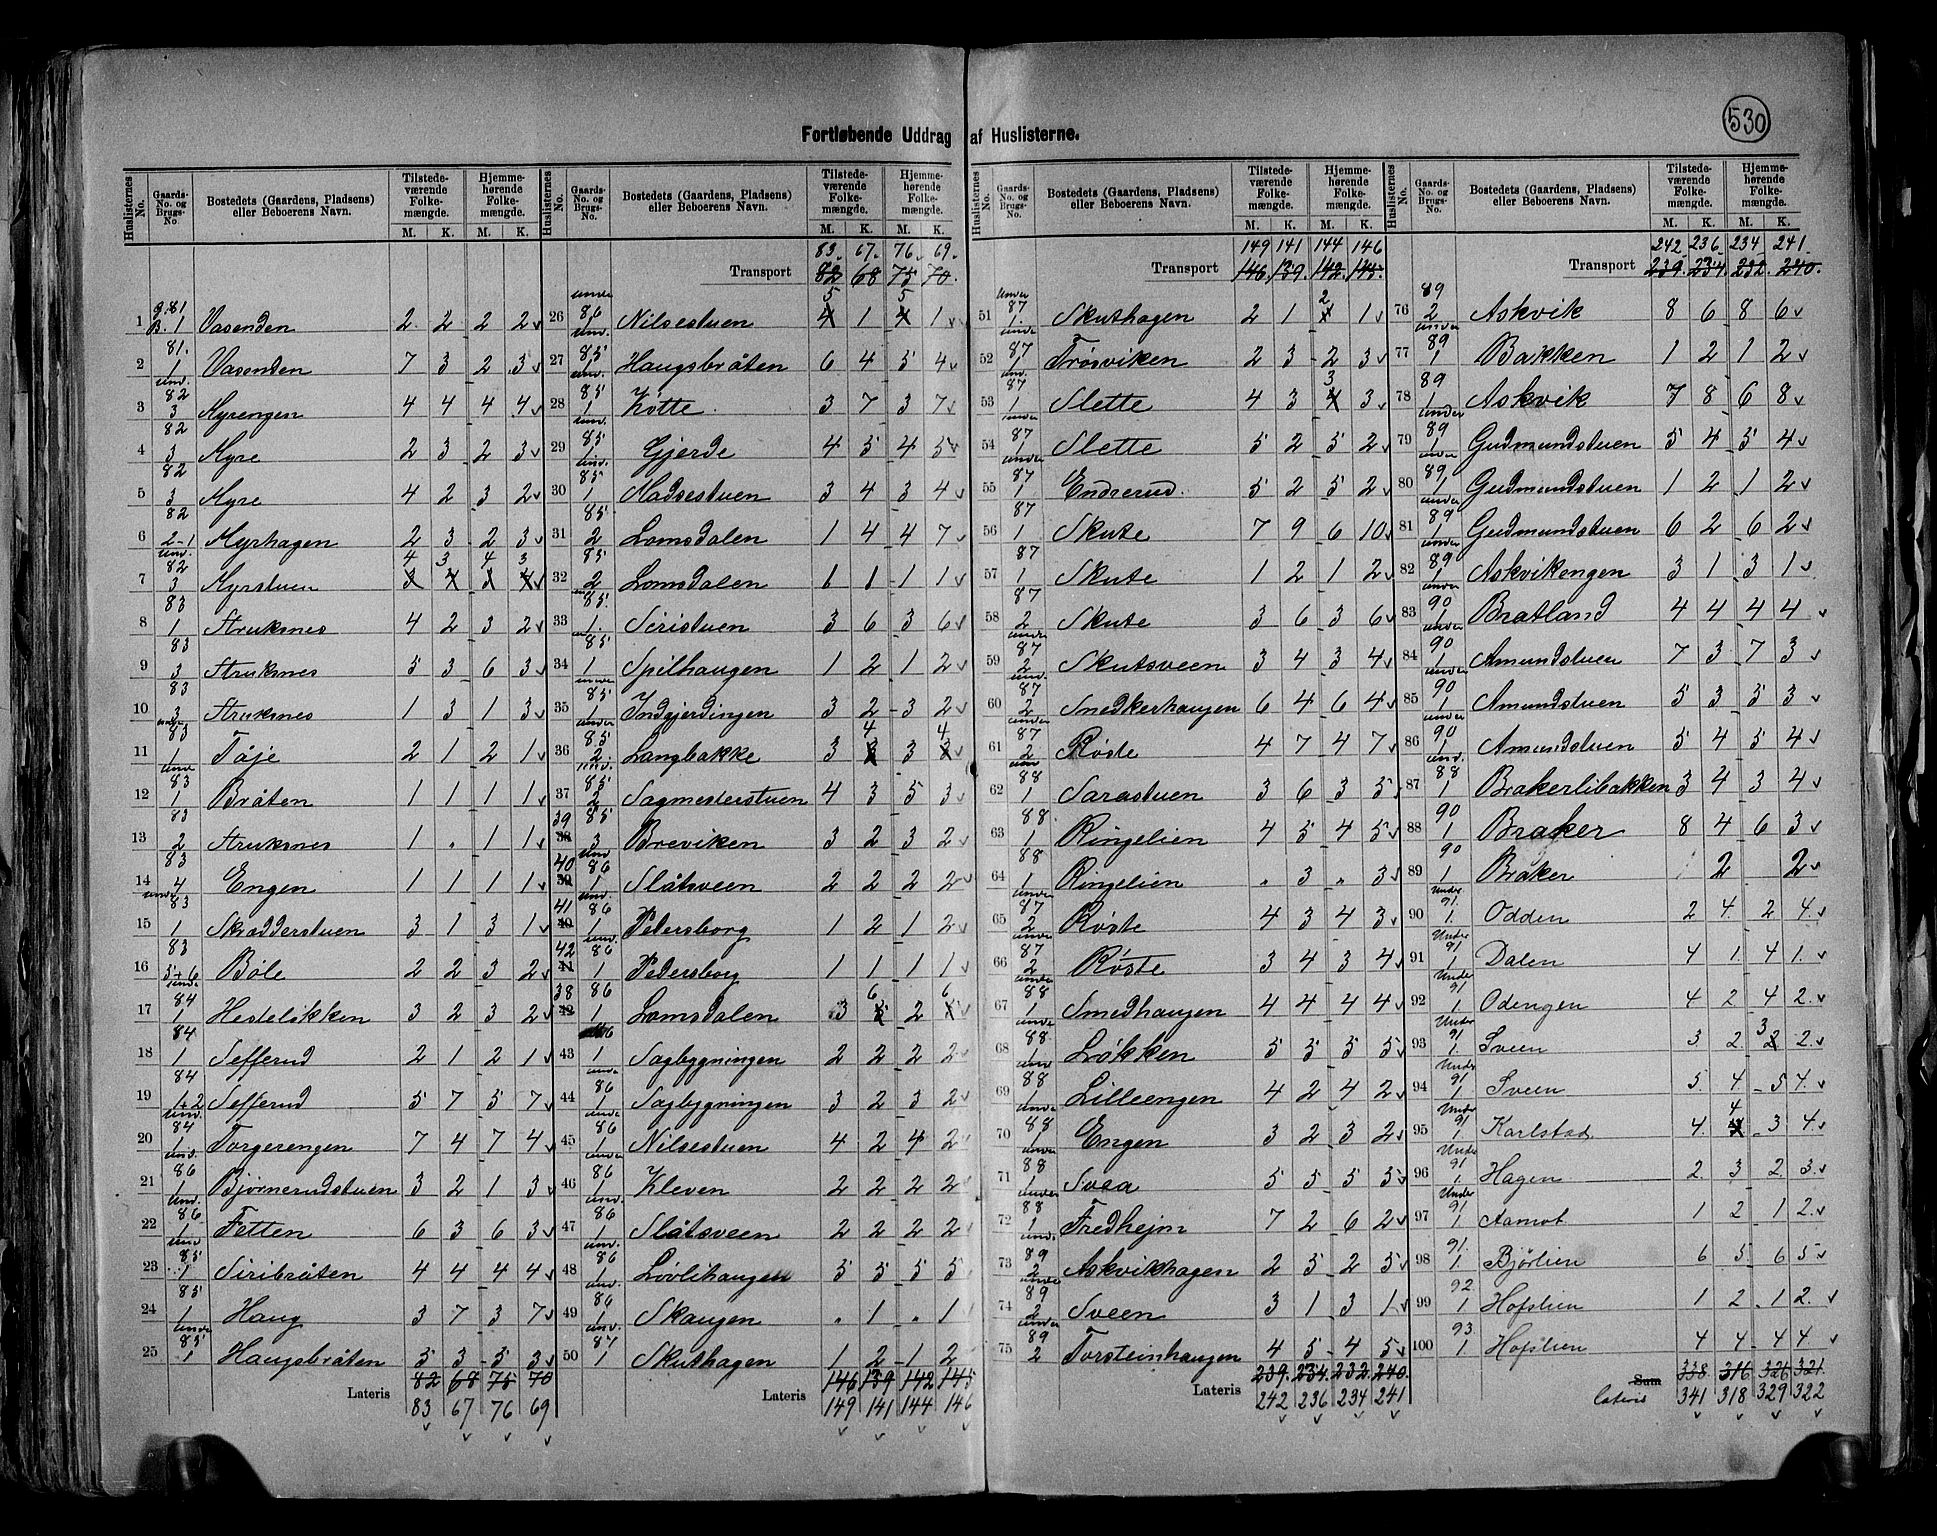 530
Fortløbende Uddrag af Huslisterne.
Huslisternes No. Gaards-No. og Brugs-No. Bostedets (Gaardens, Pladsens) eller Beboerens Navn. Tilstedeværende Folkemængde. M. K. Hjemmehørende Folkemængde. M. K.
1 g. 81 B. 1 Vasenden 2 2 2 2
2 81. 1 Vasenden 7 3 2 3
3 und. 82 3 Myrengen 4 4 4 4
4 82 3 Myre 2 3 2 3
5 82 3 Myre 4 2 3 2
6 82 2-1 Myrhagen 2 3 2 3
7 und. 82 3 Myrstuen 4 3 4 3
8 83 1 Struksnes 4 2 3 2
9 83 3 Struksnes 5 3 6 3
10 83 3 Struksnes 1 3 1 3
11 under 83 1 Tøje 2 1 2 1
12 und 83 1 Bråten 1 1 1 1
13 83 2 Struksnes 1 . 1 1
14 83 4 Engen 1 1 1 1
15 under 83 1 Skrædderstuen 3 1 3 1
16 83 5+6 Bøle 2 2 3 2
17 under 84 1 Hestelikken 3 2 3 2
18 84 1 Sefferud 2 1 2 1
19 84 1+2 Sefferud 5 7 5 7
20 und. 84 1 Torgerengen 7 4 7 4
21 und. 86 1 Bjørnerudstuen 3 2 1 3
22 und. 86 1 Fetten 6 3 6 3
23 und 85 1 Siribråten 4 4 4 4
24 85 1 Haug 3 7 3 7
25 under 85 1 Haugsbråten 5 3 5 3
Lateris 82 68 75 70
83 67 76 69
Huslisternes No. Gaards-No. og Brugs-No. Bostedets (Gaardens, Pladsens) eller Beboerens Navn. Tilstedeværende Folkemængde. M. K. Hjemmehørende Folkemængde. M. K.
83. 67. 76. 69.
Transport 82 68 75 70.
26 under 86 1 Nilsestuen 5 1 5 1
27 und. 85 1 Haugsbråten 6 4 5 4
28 und. 85 1 Kötte. 3 7 3 7
29 und. 85 1 Gjerde 4 5 4 5
30 und. 85 1 Madsestuen 3 4 3 4
31 85 2 Lomsdalen 1 4 4 7
32 85 2 Lomsdalen 1 1 1 1
33 85. 1. Siristuen 3 6 3 6
34 85 1 Spilhaugen 1 2 1 2
35 under 85 1 Indgjerdingen 3 2 3 2
36 under 85 2 Langbakke 3 4 3 4
37 und. 85 2 Sagmesterstuen 4 3 5 3
39 38 85 3 Breviken 3 2 3 2
40 39 und 86 1 Slåtsveen 2 2 2 2
41 40 und. 86 1 Petersborg 1 2 1 2
42 41 und. 86 1 Petersborg 1 1 1 1
38 42 86 1 Lomsdalen 3 6 2 6
43 86 1 Sagbygningen 2 2 2 2
44 under 86 1 Sagbygningen 3 2 3 2
45 under 86 1 Nilsestuen 4 2 4 2
46 under 86 1 Kleven 2 2 2 2
47 und. 86 1 Slåtsveen 2 2 2 2
48 und. 86 1 Lövlihaugen 5 5 5 5
49 und. 86 1 Skaugen . 1 . 1
50 und. 87 1 Skuthagen 1 2 1 2
Lateris 146 139 142 145
149 141 144 146
Huslisternes No. Gaards-No. og Brugs-No. Bostedets (Gaardens, Pladsens) eller Beboerens Navn. Tilstedeværende Folkemængde. M. K. Hjemmehørende Folkemængde. M. K.
149 141 144 146
Transport 146. 139. 142. 145.
51 Under 87 1 Skuthagen 2 1 2 1
52 under 87 1 Trøsviken 2 3 2 3
53 und. 87 1 Slette 4 3 3 3
54 under 87 1 Slette 5 2 5 2
55 under 87 1 Endrerud. 5 2 5 2
56 87 1 Skute 7 9 6 10
57 87 1 Skute 1 2 1 2
58 87 2 Skute 3 6 3 6
59 under 87 2 Skutsveen 3 4 3 4
60 und. 87 2 Smedkerhaugen 6 4 6 4
61 under 87 2 Røste 4 7 4 7
62 und 88 1 Sarastuen 3 6 3 5
63 88 1 Ringelien 4 5 4 5
64 88 1 Ringelien . 3 . 3
65 under 87 2 Røste 4 3 4 3
66 under 87 2 Røste 3 4 3 4
67 under 88 1 Smedhaugen 4 4 4 4
68 under 88 1 Løkken 5 5 5 5
69 und 88 1 Lilleengen 4 2 4 2
70 under 88 1 Engen 3 2 3 2
71 under 88 1 Svea 5 5 5 5
72 under 88 1 Fredhejm 7 2 6 2
73 und. 89 2 Askvikhagen 2 5 2 5
74 under 89 2 Sveen 3 1 3 1
75 under 89 2 Torsteinhaugen 4 5 4 5
Lateris 239. 234. 232. 240.
242 236 234 241
Huslisternes No. Gaards-No. og Brugs-No. Bostedets (Gaardens, Pladsens) eller Beboerens Navn. Tilstedeværende Folkemængde. M. K. Hjemmehørende Folkemængde. M. K.
242 236 234 241.
Transport 239. 234. 232. 240.
76 89 2 Askvik 8 6 8 6
77 under 89 1 Bakken 1 2 1 2
78 89 1 Askvik 7 8 6 8
79 under 89 1 Gudmundstuen 5 4 5 4
80 under 89 1 Gudmundstuen 1 2 1 2
81 under 89 1 Gudmundstuen 6 2 6 2
82 under 89 1 Askvikengen 3 1 3 1
83 under 90 1 Bratland 4 4 4 4
84 under 90 1 Amundstuen 7 3 7 3
85 under 90 1 Amundstuen 5 3 5 3
86 under 90 1 Amundstuen 5 4 5 4
87 und. 88 1 Brakerlibakken 3 4 3 4
88 90 1 Braker 8 4 6 3
89 90 1 Braker 2 2
90 Under 91. 1. Odden 2 4. 2 4.
91 Under 91 1. Dalen 4 1. 4 1.
92 Under 91 1 Odengen 4 2 4 2.
93 Under 91 1. Sveen 3. 2 3 2.
94 Under 91 1. Sveen 5 4. 5 4.
95 Under 91 1 Karlstad 4. 4 3 4.
96 Under 91 1. Hagen 2. 3 2. 3.
97 Under 91 1. Aamot 1 2 1 2.
98 91. 1. Bjørlien 6 5. 6 5
99 92. 1 Hofslien 1 2. 1 2.
100 93. 1 Hofslien 4 4. 4 4.
Sum 338. 316 326 321.
Lateris 341 318 329 322